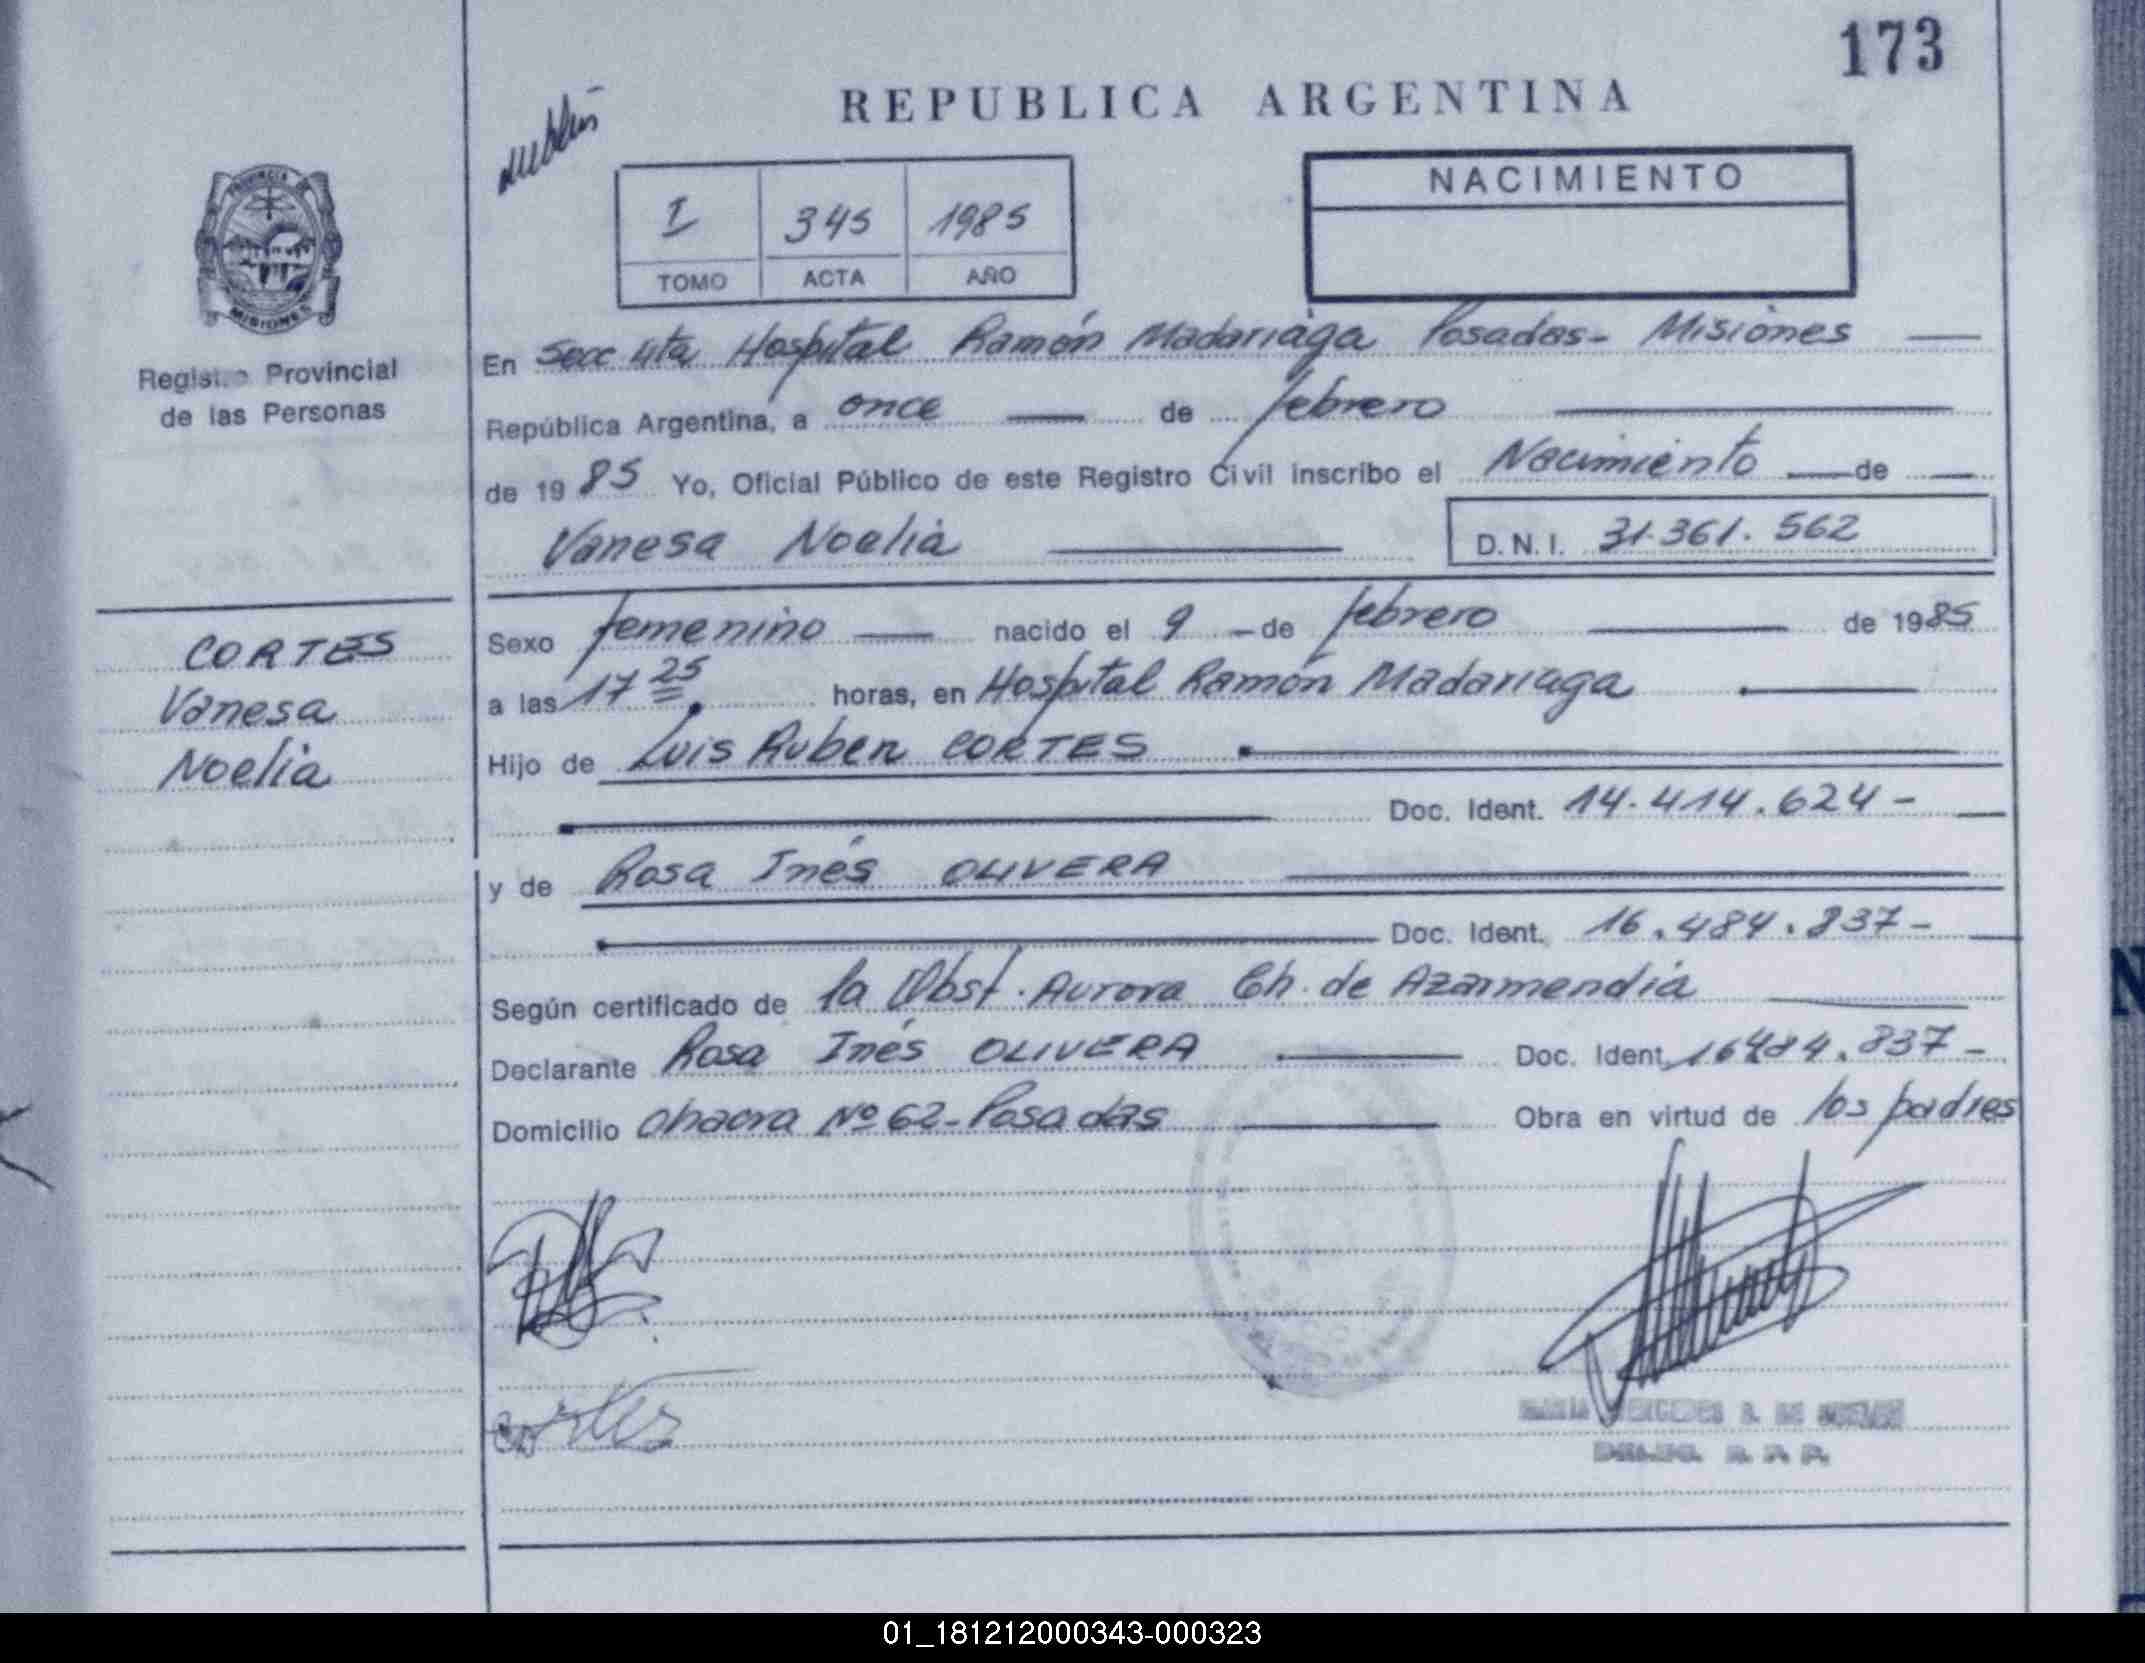 173
REPUBLICA ARGENTINA
PROVINCIA DE
MISIONES
Registro Provincial
de las Personas
I 345 1985
TOMO ACTA AÑO
NACIMIENTO
En Secc 4ta Hospital Ramón Madariaga Posadas- Misiones
República Argentina, a once de febrero
de 1985 Yo, Oficial Público de este Registro Civil inscribo el Nacimiento de
Vanesa Noelia D.N.I. 31.361.562
CORTES
Vanesa
Noelia
Sexo femenino nacido el 9 - de febrero de 1985
a las 17 25 horas, en Hospital Ramón Madariaga
Hijo de Luis Ruben CORTES
Doc. Ident. 14.414.624-
y de Rosa Inés OLIVERA
Doc. Ident. 16.484.837-
Según certificado de la Obst. Aurora Ch. de Azarmendia
Declarante Rosa Inés OLIVERA Doc. Ident. 16484.837-
Domicilio Chacra Nº 62-Posadas Obra en virtud de los padres
MARIA MERCEDES
01_181212000343-000323